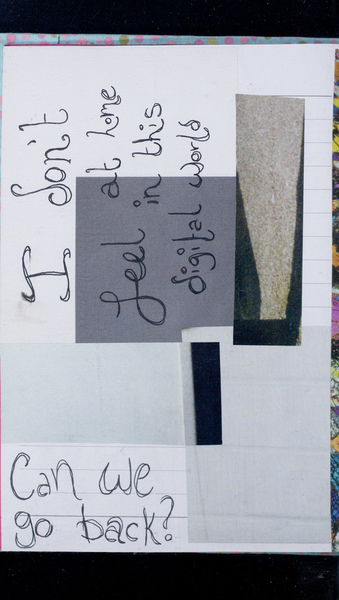 I don't
feel at home
in this
digital world
Can we
go back?